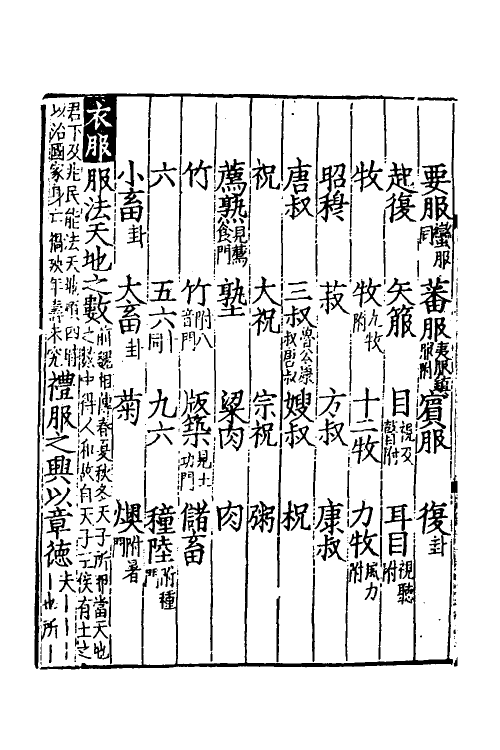 要服蠻服同 蕃服夷服鎮服附 賓服 復卦
起復 矢箙 目視及瞽附 耳目視聽附
牧 牧九牧附 十二牧 力牧風力附
昭穆 菽 方叔 康叔
唐叔 三叔魯公康叔唐叔 嫂叔 柷
祝 大祝 宗祝 粥
薦熟見薦食門 塾 粱肉 肉
竹 竹附八音門 版築見土功門 儲畜
六 五六十一同 九六 穜陸附種門
小畜卦 大畜卦 菊 燠附暑門
衣服 服法天地之數前魏相陳春夏秋冬天子所服當天地之數中得人和故自天子王侯有土之
君下及兆民能法天地順四時以治國家身亡禍殃年壽未究 禮服之興以章德夫 也所